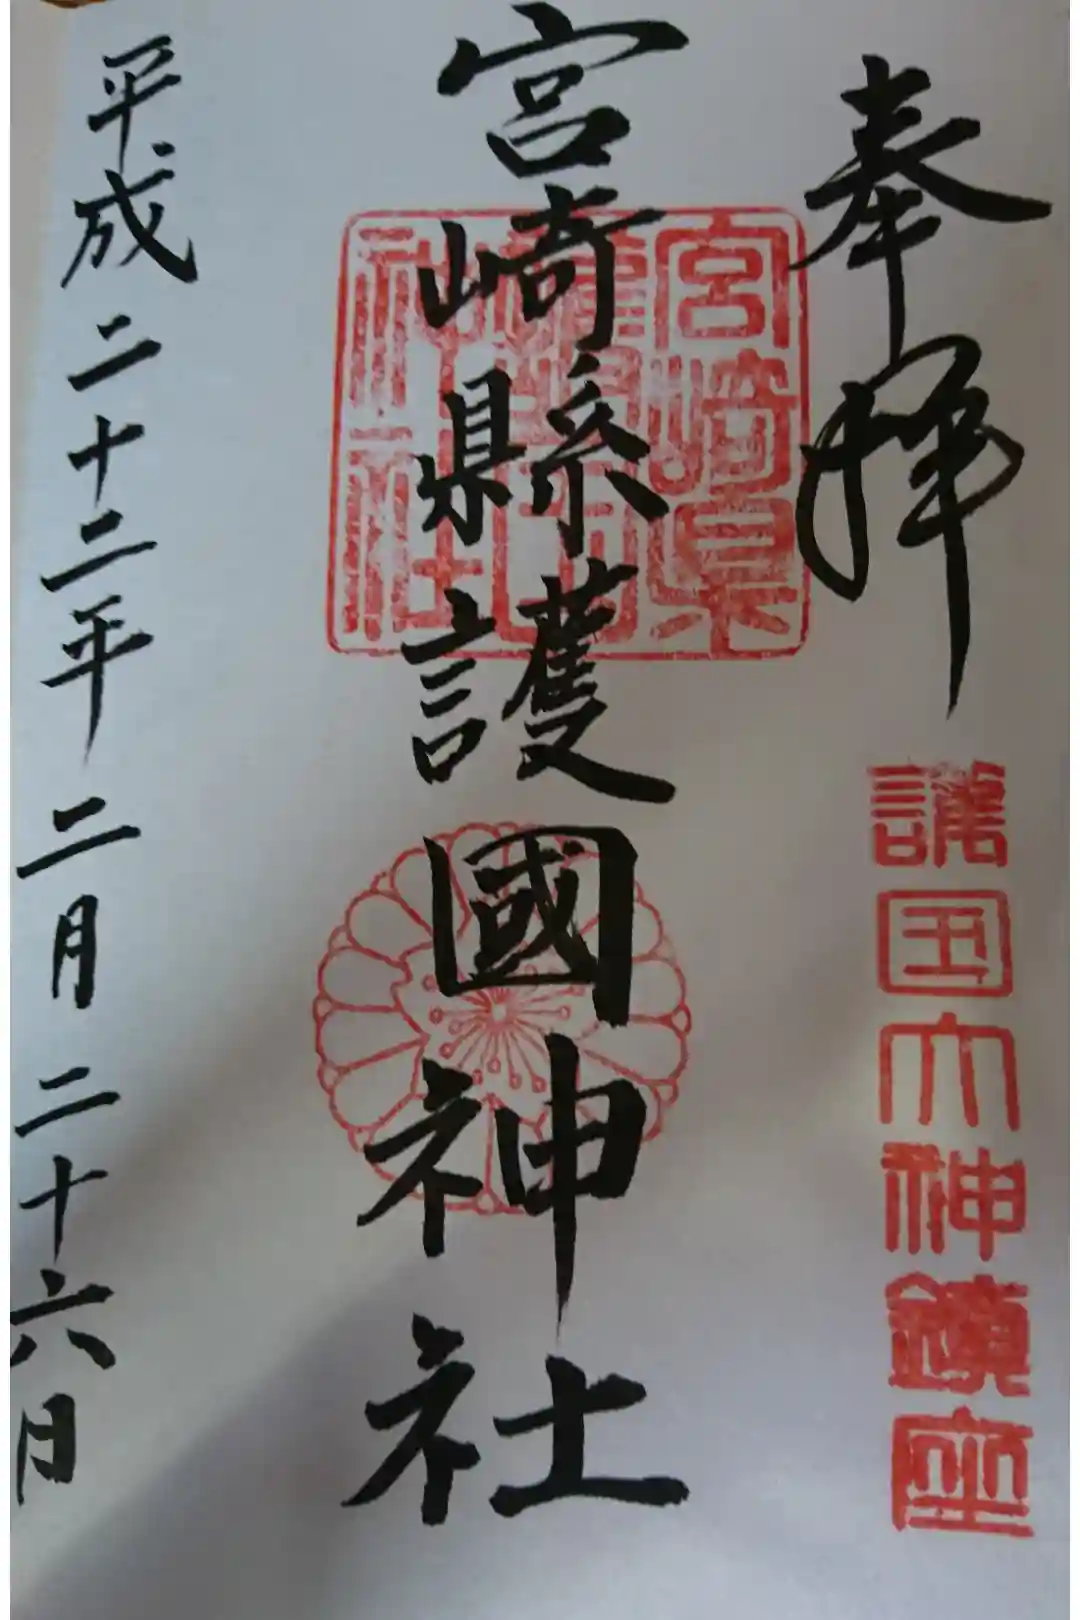 奉拝
護国大神鎮座
宮崎縣護國神社
宮崎県
護國
神社
平成二十二年二月二十六日